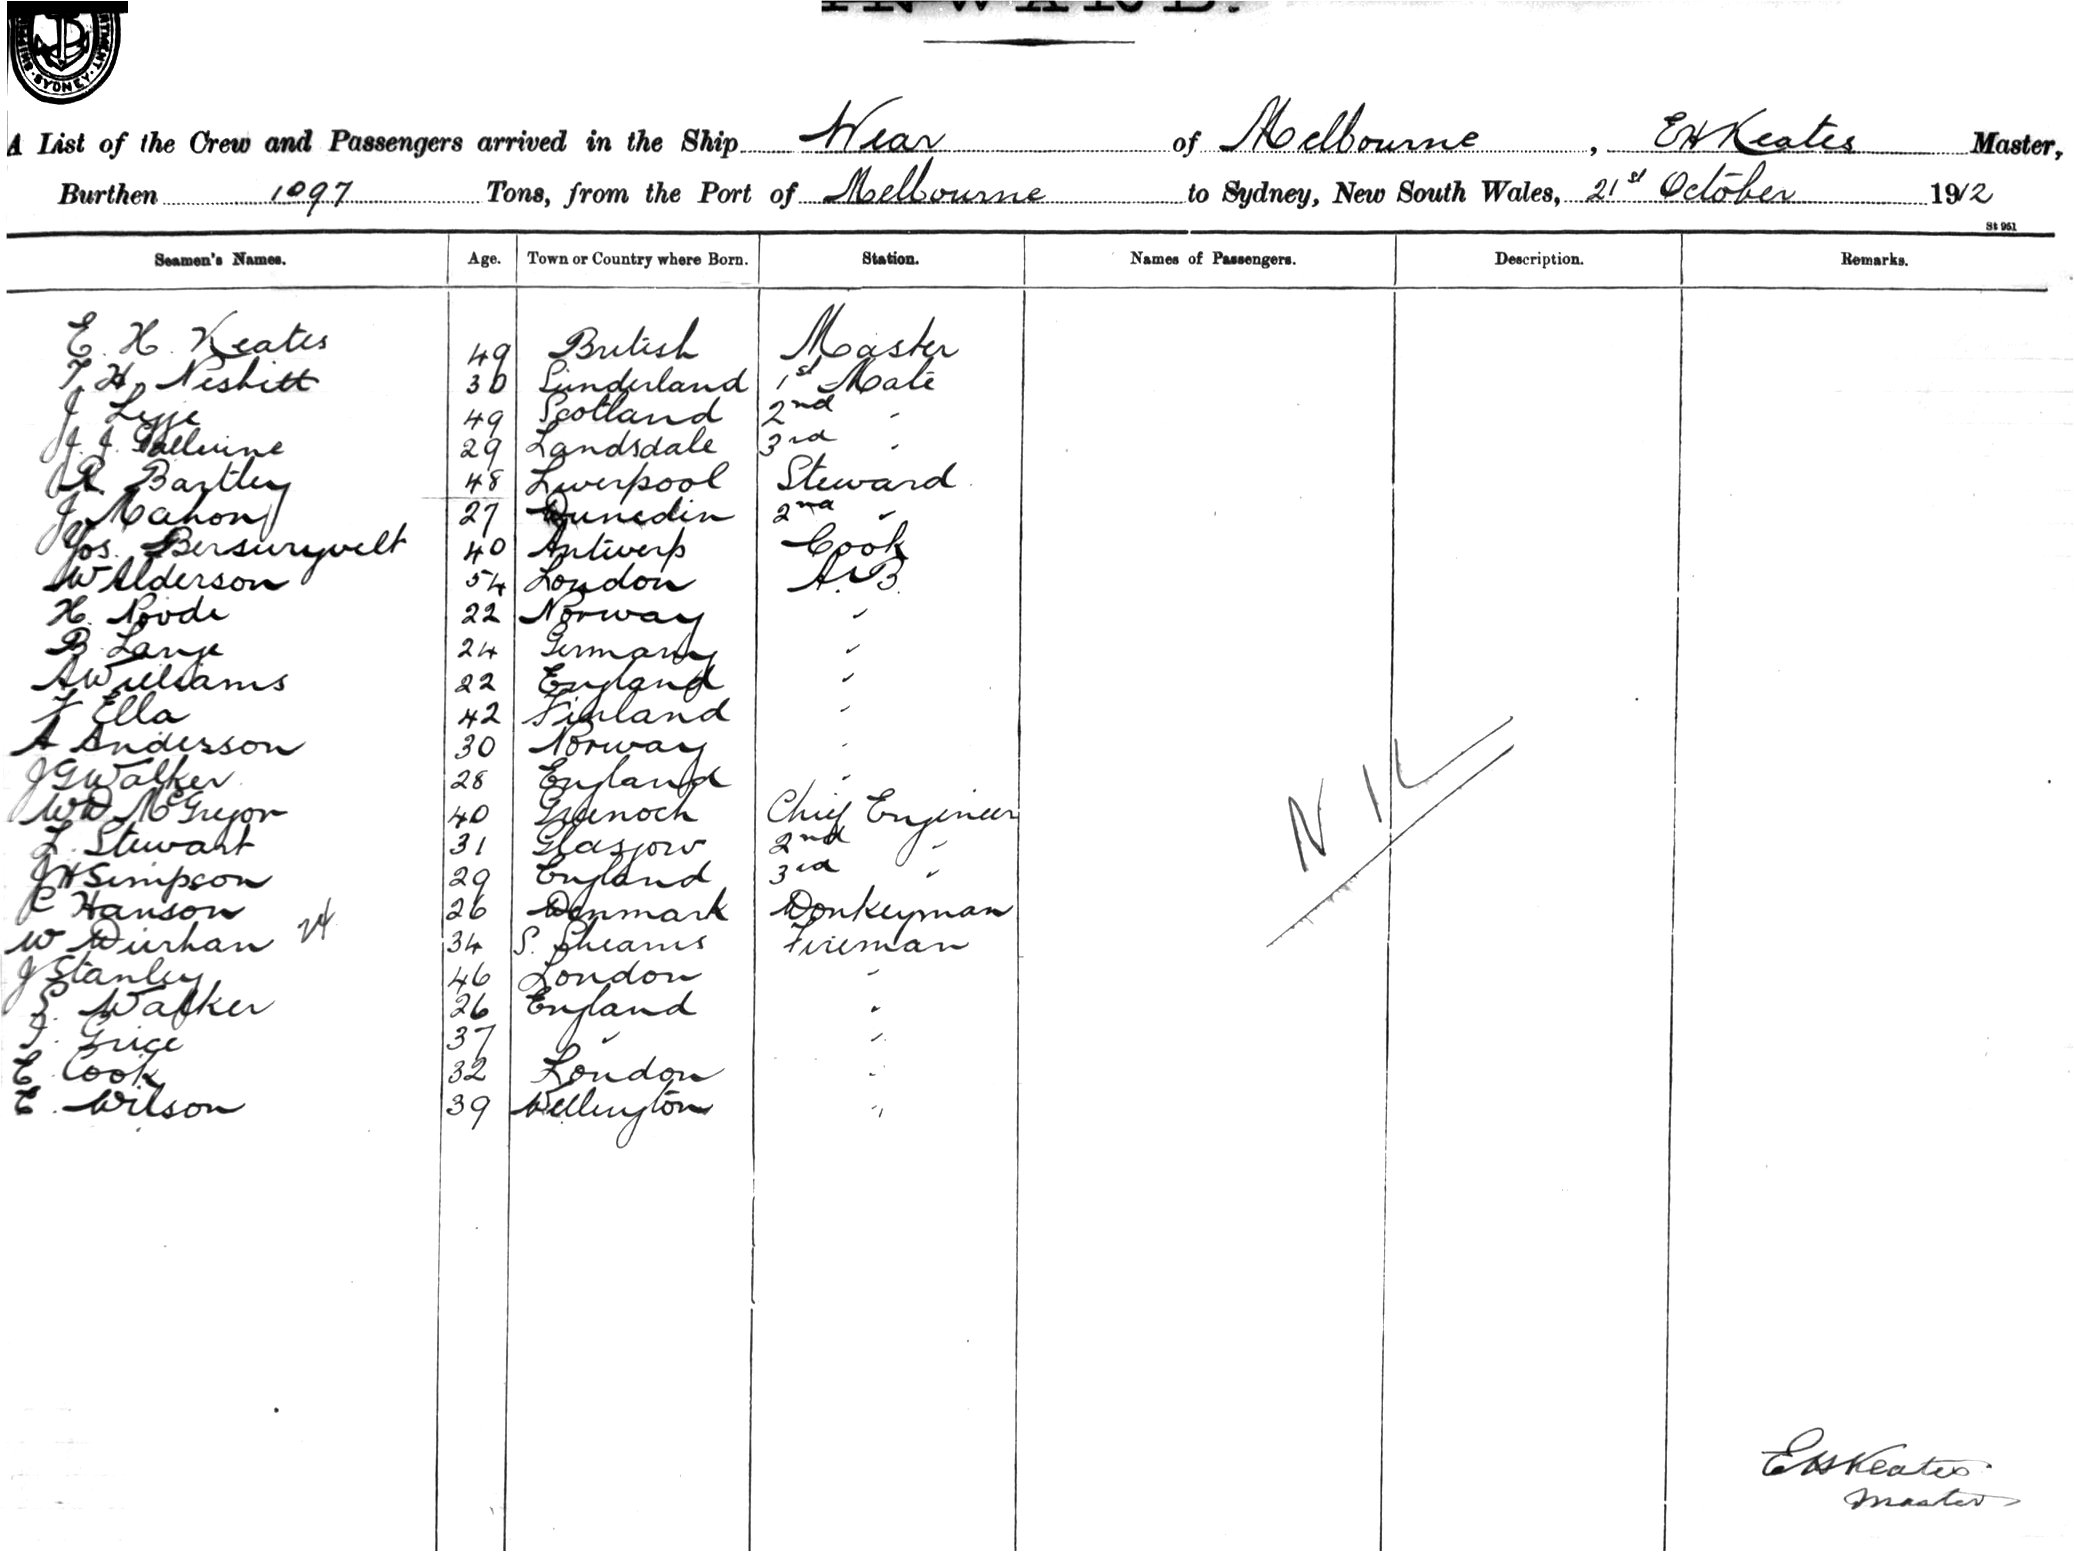 INWARD.
SYDNEY
A List of the Crew and Passengers arrived in the Ship Wear of Melbourne, E H Keates Master,
Burthen 1097 Tons, from the Port of Melbourne to Sydney, New South Wales, 21st October 1912
St 951
Seamen's Names. Age. Town or Country where Born. Station. Names of Passengers. Description. Remarks.
E. H. Keates 49 British Master
T. H. Nesbitt 30 Sunderland 1st Mate
J 49 Scotland 2nd "
J. J. 29 Landsdale 3rd "
R Bartley 48 Liverpool Steward
J Mahony 27 Dunedin 2nd "
Jos. 40 Antwerp Cook
W Alderson 54 London A.B.
H. 22 Norway "
B Lange 24 Germany "
A Williams 22 England "
F Ella 42 Finland "
A Anderson 30 Norway "
J G Walker 28 England "
W D McGregor 40 Greenock Chief Engineer
L. Stewart 31 Glasgow 2nd "
J H Simpson 29 England 3rd "
C Hanson 26 Denmark Donkeyman
W Durhan 34 S. Fireman
J Stanley 46 London "
S. Walker 26 England "
Grice 37 " "
E Cook 32 London "
E. Wilson 39 Wellington "
24
NIL
E H Keates
Master